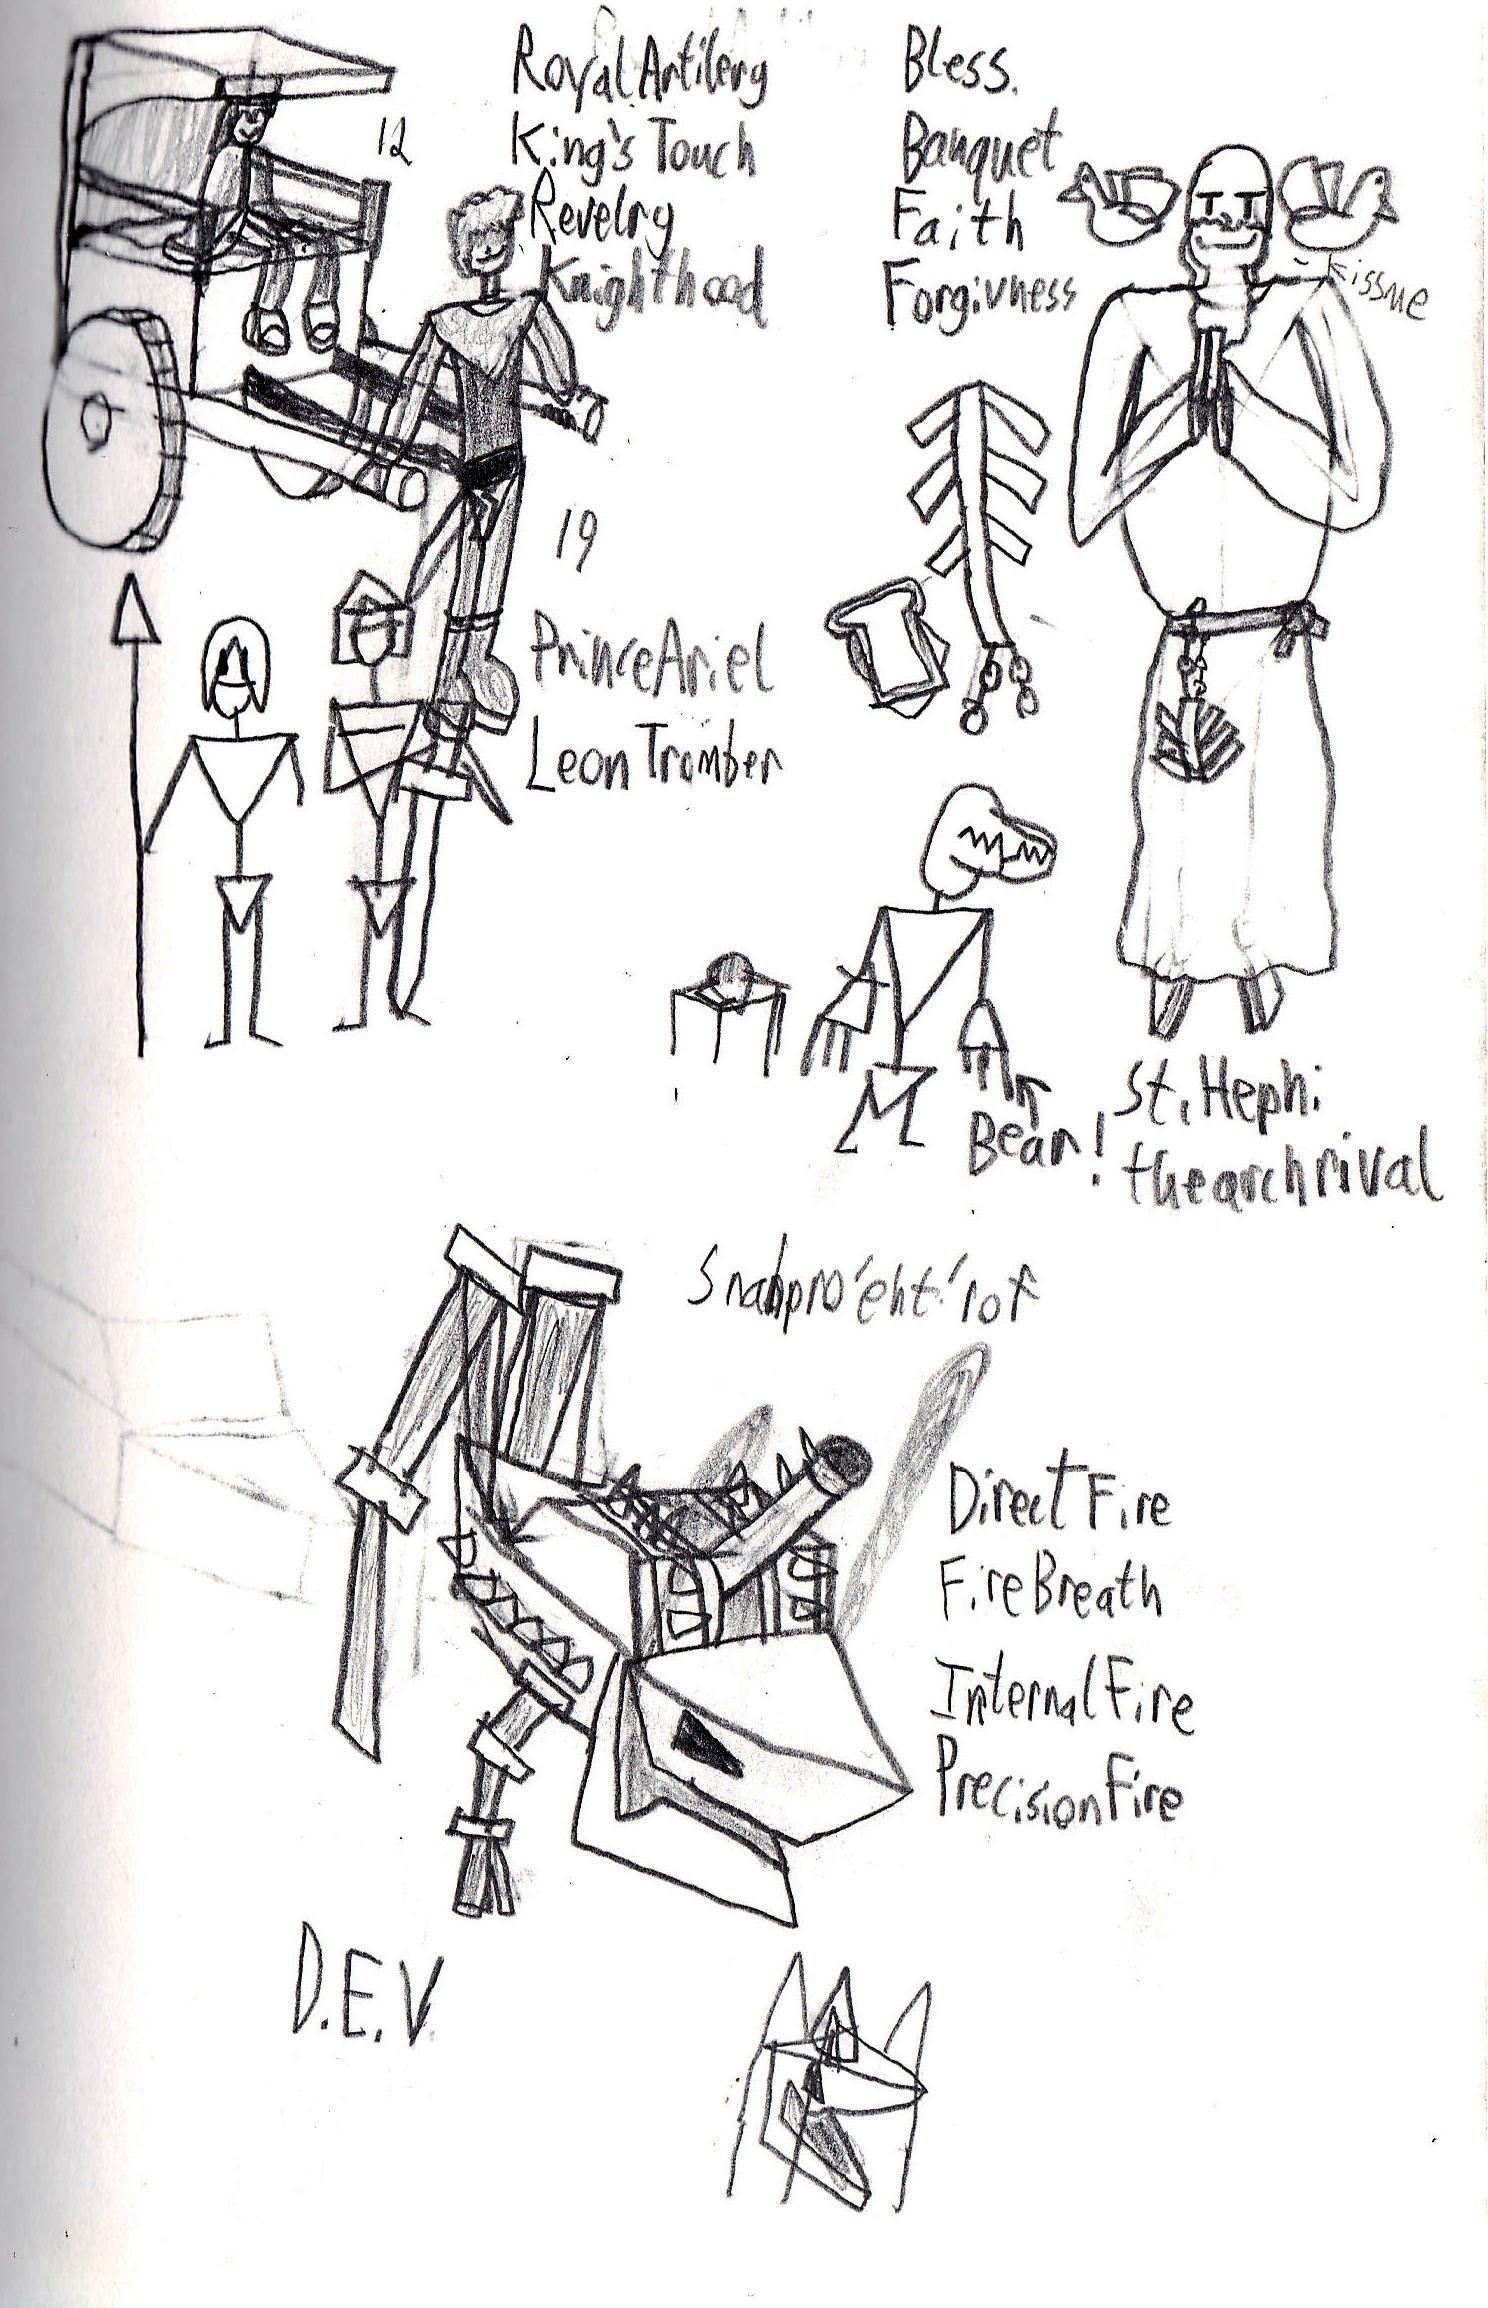 Royal Artilery
King's Touch
Revelry
Knighthood
12
19
Prince Ariel
Leon Tromber
Bless.
Banquet
Faith
Forgivness
kissme
Bear!
St. Hephi
the arch rival
Snabpro'eht'rof
Direct Fire
Fire Breath
Internal Fire
Precision Fire
D.E.V.